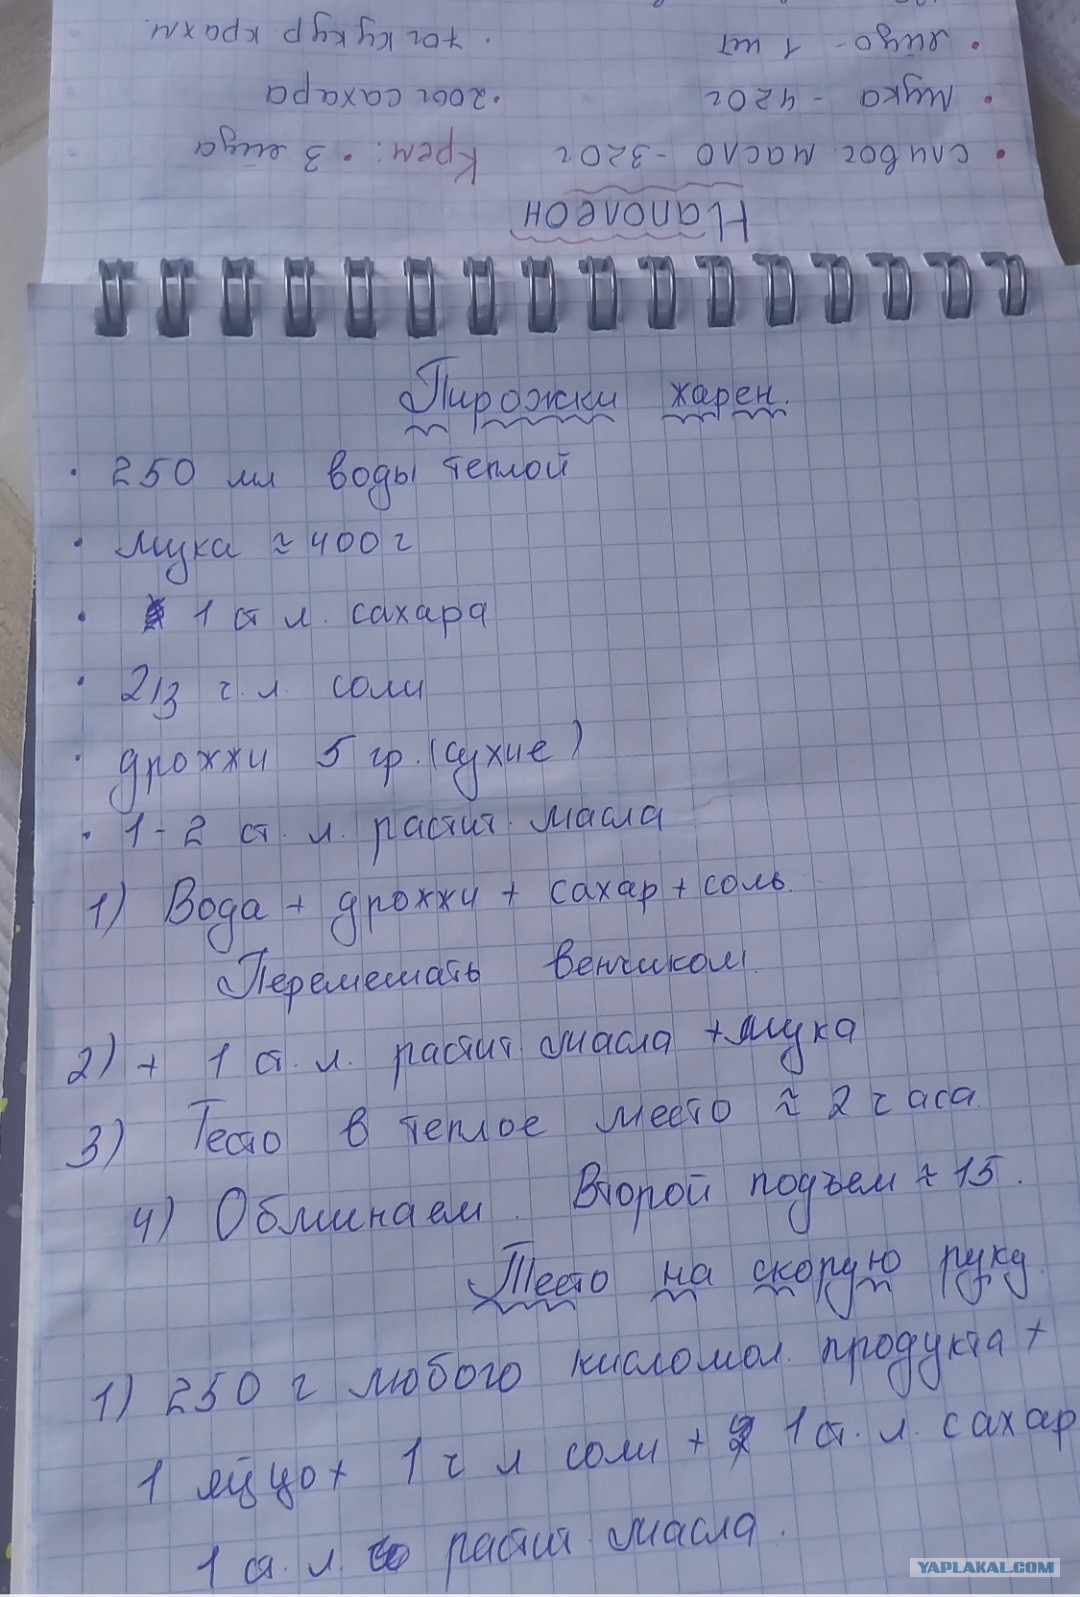 Наполеон
• сливоч. масло - 320г Крем: • 3 яйца
• мука - 420г • 200г сахара
• яйцо - 1 шт • 70г кукур крахм.
Пирожки жарен.
• 250 мл воды теплой
• мука ≈ 400 г
• 1 ст л. сахара
• 2/3 ч.л. соли
• дрожжи 5 гр. (сухие)
• 1-2 ст. л. растит. масла
1) Вода + дрожжи + сахар + соль.
Перемешать венчиком.
2) + 1 ст. л. растит. масла + мука
3) Тесто в теплое место ≈ 2 часа.
4) Обминаем. Второй подъем ≈ 15.
Тесто на скорую руку.
1) 250 г любого кисломол. продукта +
1 яйцо + 1 ч л соли + 1 ст. л. сахар
1 ст. л. растит. масла.
YAPLAKAL.COM